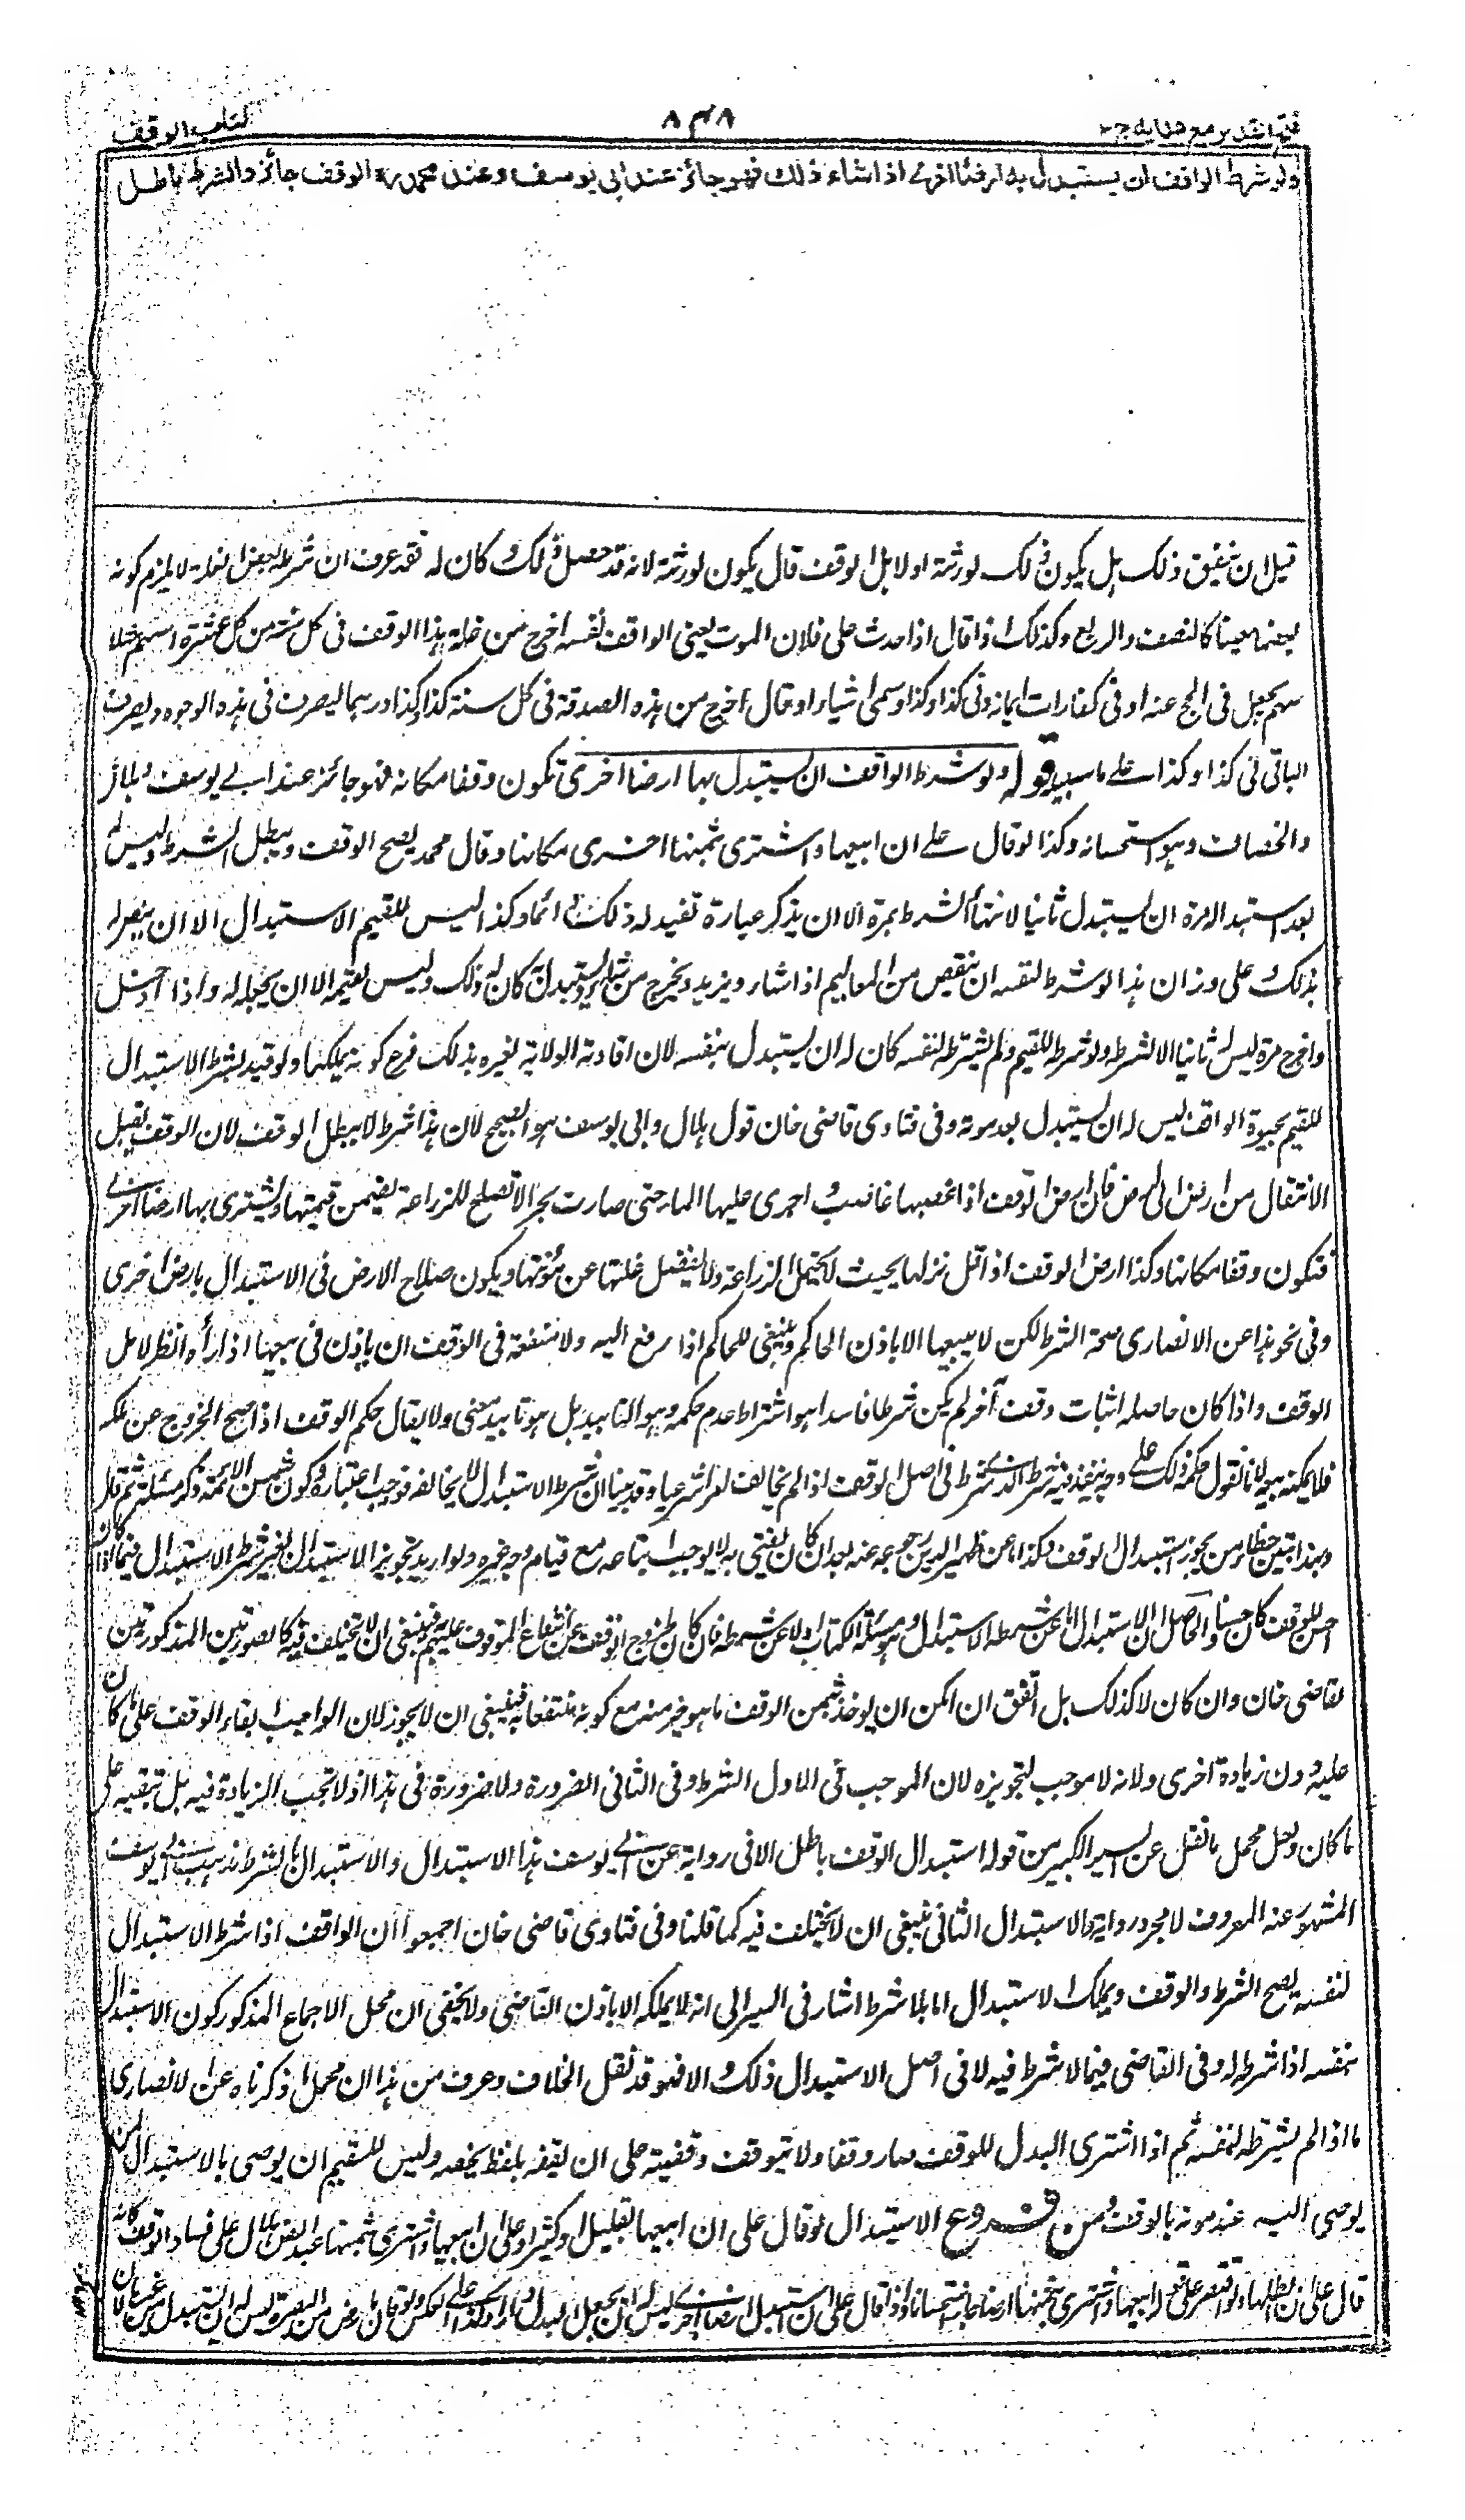 فتح القدير مع هدايه ج٢
٨٣٨
كتاب الوقف
ولو شرط الواقف ان يستبدل به ارضا اخرى اذا شاء ذلك فهو جائز عند ابي يوسف وعند محمد ره الوقف جائز والشرط باطل
قيل ان ينفق ذلك هل يكون ذلك لورثته او لاهل الوقف قال يكون لورثته لانه قد حصل ذلك وكان له فقد عرف ان شرط بعض الغلة لا يلزم كونه
بعضا معينا كالنصف والربع وكذلك اذا قال اذا حدث على فلان الموت يعني الواقف نفسه اخرج من غلة هذا الوقف في كل سنة من كل عشرة اسهم مثلا
سهم يجعل في الحج عنه او في كفارات ايمانه وفي كذا وكذا وسمى اشياء او قال اخرج من هذه الصدقة في كل سنة كذا وكذا درهما ليصرف في هذه الوجوه ويصرف
الباقي في كذا وكذا على ما سبله قوله ولو شرط الواقف ان يستبدل بها ارضا اخرى تكون وقفا مكانه فهو جائز عند ابي يوسف وهلال
والخصاف وهو استحسان وكذا لو قال على ان ابيعها واشترى بثمنها اخرى مكانها وقال محمد يصح الوقف ويبطل الشرط وليس له
بعد استبداله مرة ان يستبدل ثانيا لانتهاء الشرط بمرة الا ان يذكر عبارة تفيد له ذلك دائما وكذا ليس للقيم الاستبدال الا ان ينص له
بذلك وعلى وزان هذا لو شرط لنفسه ان ينقص من المعاليم اذا شاء ويزيد ويخرج من شاء ويستبدل به كان له ذلك وليس لقيمه الا ان يجعله له واذا ادخل
واخرج مرة ليس له ثانيا الا بشرط ولو شرطه للقيم ولم يشترطه لنفسه كان له ان يستبدل بنفسه لان افادته الولاية لغيره بذلك فرع كونه يملكها ولو قيد شرط الاستبدال
للقيم بحيوة الواقف ليس له ان يستبدل بعد موته وفي فتاوى قاضي خان قول هلال وابي يوسف هو الصحيح لان هذا شرط لا يبطل الوقف لان الوقف يقبل
الانتقال من ارض الى ارض فان ارض الوقف اذا غصبها غاصب واجرى عليها الماء حتى صارت بحرا لا تصلح للزراعة يضمن قيمتها ويشترى بها ارضا اخرى
فتكون وقفا مكانها وكذا ارض الوقف اذا قل نزلها بحيث لا تحتمل الزراعة ولا تفضل غلتها عن مؤنتها ويكون صلاح الارض في الاستبدال بارض اخرى
وفي نحو هذا عن الانصارى صحة الشرط لكن لا يبيعها الا باذن الحاكم وينبغي للحاكم اذا رفع اليه ولا منفعة في الوقف ان ياذن في بيعها اذا رأه انظر لاهل
الوقف واذا كان حاصله اثبات وقف آخر لم يكن شرطا فاسدا هو اشتراط عدم حكمه وهو التابيد بل هو تابيد معنى ولا يقال حكم الوقف اذا صح الخروج عن ملكه
فلا يمكنه بيعه لانا نقول حكمه ذلك على وجه ينفذ فيه شرطه الذى شرط في اصل الوقف اذا لم يخالف امرا شرعيا وقد بينا ان شرط الاستبدال لا يخالفه فوجب اعتباره وكون شمس الائمة ذكر مسئلة ثم قال
وبهذا تبين خطأ من يجوز استبدال الوقف وكذا عن ظهير الدين رجوعه عنه بعد ان كان يفتي به لا يوجب اتباعه مع قيام وجه غيره ولو اريد تجويز الاستبدال بغير شرط الاستبدال فيما اذا كان
احسن للوقف كان حسنا والحاصل ان الاستبدال اما عن شرطه الاستبدال وهو مسئلة الكتاب او لا عن شرطه فان كان لخروج الوقف عن انتفاع الموقوف عليهم فينبغي ان لا يختلف فيه كالصورتين المذكورتين
لقاضي خان وان كان لا كذلك بل اتفق ان امكن ان يوخذ بثمن الوقف ما هو خير منه مع كونه منتفعا به فينبغي ان لا يجوز لان الواجب ابقاء الوقف على ما كان
عليه دون زيادة اخرى ولانه لا موجب لتجويزه لان الموجب في الاول الشرط وفي الثاني الضرورة ولا ضرورة في هذا اذ لا تجب الزيادة فيه بل تبقيه على
ما كان ولعل محمل ما نقل عن السير الكبير من قوله استبدال الوقف باطل الا في رواية عن ابي يوسف هذا الاستبدال والاستبدال بالشرط مذهب ابي يوسف
المشهور عنه المعروف لا مجرد رواية والاستبدال الثاني ينبغي ان لا يختلف فيه كما قلنا وفي فتاوى قاضي خان اجمعوا ان الواقف اذا شرط الاستبدال
لنفسه يصح الشرط والوقف ويملك الاستبدال اما بلا شرط اشار في السير الى انه لا يملكه الا باذن القاضي ولا يخفى ان محل الاجماع المذكور كون الاستبدال
بنفسه اذا شرط له وفي القاضي فيما لا شرط فيه لا في اصل الاستبدال ذلك والا فهو قد نقل الخلاف وعرف من هذا ان محمل ما ذكرناه عن الانصارى
ما اذا لم يشترطه لنفسه ثم اذا اشترى البدل للوقف صار وقفا ولا تتوقف وقفيته على ان يقفه بلفظ يخصه وليس للقيم ان يوصى بالاستبدال لمن
يوصى اليه عند موته بالوقف ومن فروع الاستبدال لو قال على ان ابيعها بقليل او كثير او على ان ابيعها واشترى بثمنها عبدا قال هلال على فساد الوقف كانه
قال على ان ابطلها ولو اقتصر على قوله ابيعها واشترى بثمنها ارضا جاز استحسانا واذا قال على ان استبدل ارضا اخرى ليس له ان يجعل البدل دارا وكذا على العكس ولو قال بارض من البصرة ليس له ان يستبدل من غيرها